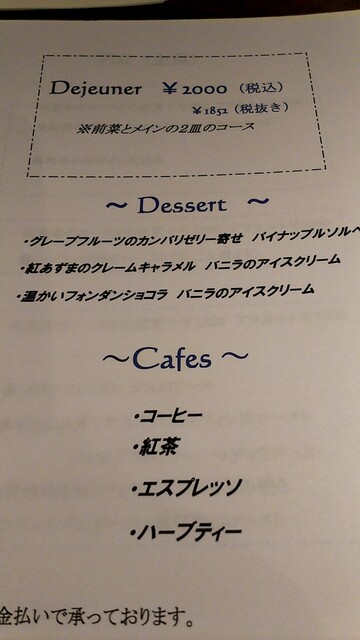 Dejeuner ￥2000（税込）
￥1852（税抜き）
※前菜とメインの２皿のコース
～ Dessert ～
・グレープフルーツのカンパリゼリー寄せ パイナップルソルベ
・紅あずまのクレームキャラメル バニラのアイスクリーム
・温かいフォンダンショコラ バニラのアイスクリーム
～Cafes～
・コーヒー
・紅茶
・エスプレッソ
・ハーブティー
金払いで承っております。